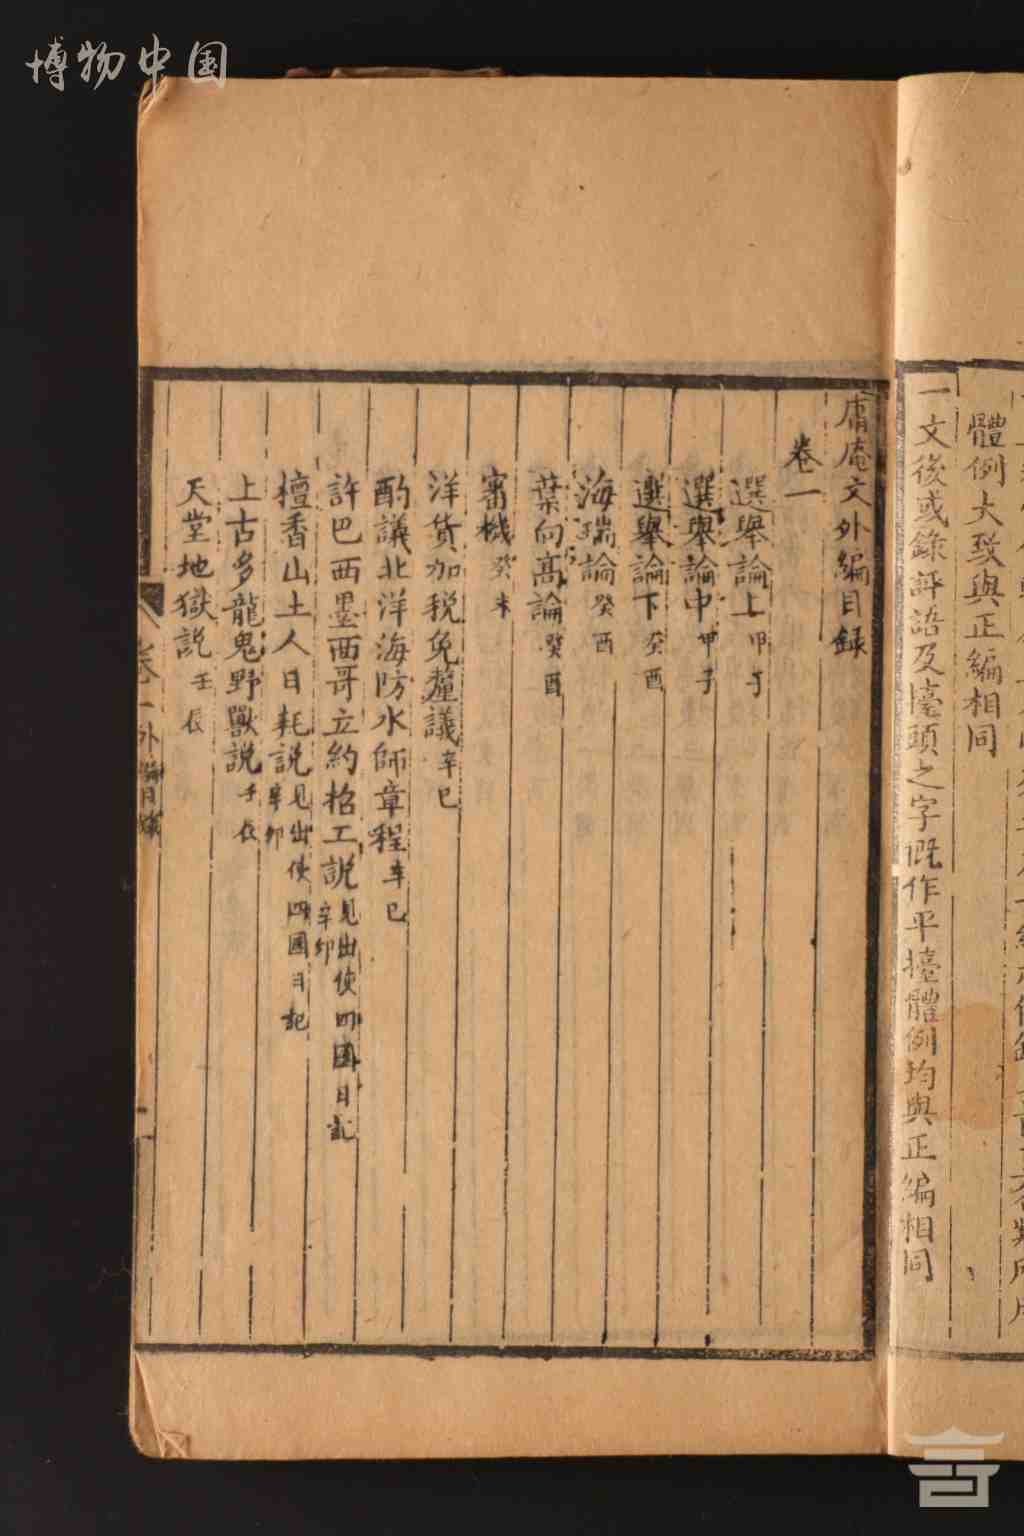 博物中国
體例大致與正編相同
一文後或錄評語及擡頭之字概作平擡體例均與正編相同
庸庵文外編目錄
卷一
選舉論上甲子
選舉論中甲子
選舉論下癸酉
海瑞論癸酉
葉向高論癸酉
審機癸未
洋貨加稅免釐議辛巳
酌議北洋海防水師章程辛巳
許巴西墨西哥立約招工說見出使四國日記辛卯
檀香山土人日耗說見出使四國日記辛卯
上古多龍鬼野獸說壬辰
天堂地獄說壬辰
卷一外編目錄